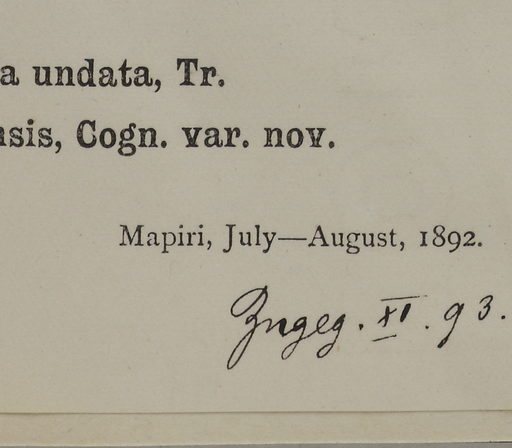 a undata, Tr.
nsis, Cogn. var. nov.
Mapiri, July—August, 1892.
Zugeg. XI. 93.